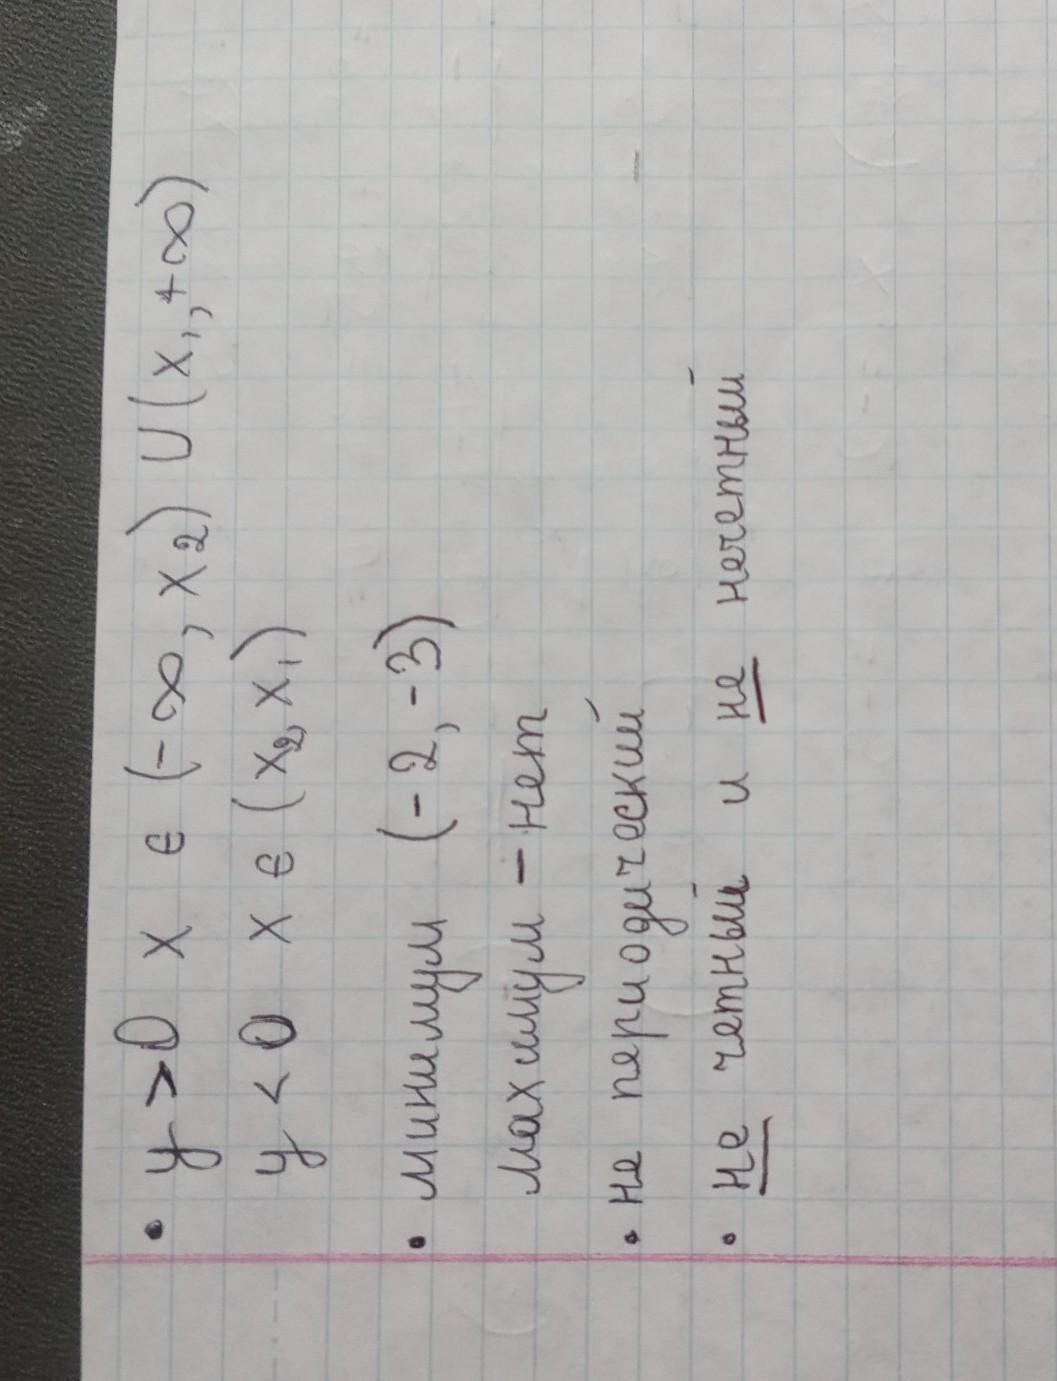 • y > 0 x ∈ (-∞, x₂) ∪ (x₁, +∞)
y < 0 x ∈ (x₂, x₁)
• минимум (-2, -3)
махимум - нет
• не периодический
• не четный и не нечетный